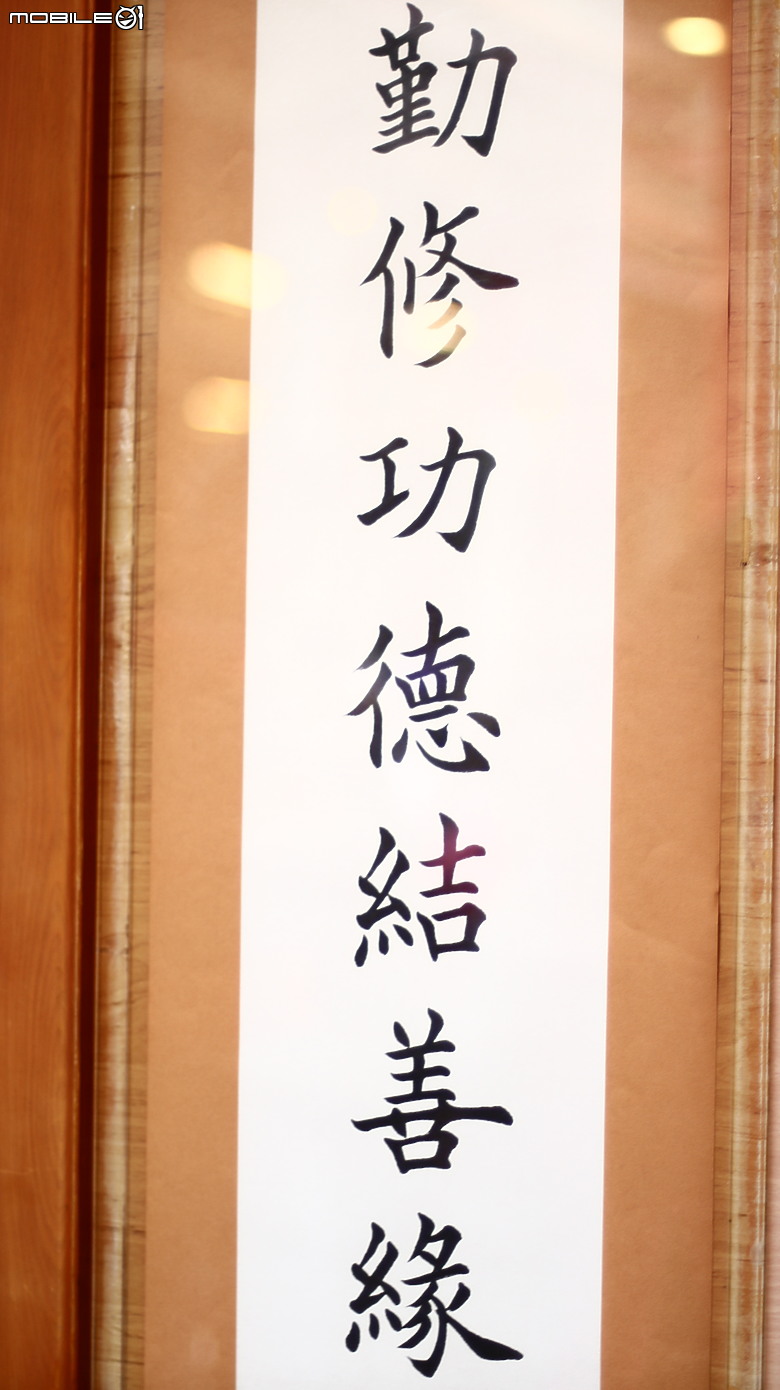 MOBILE01
勤修功德結善緣